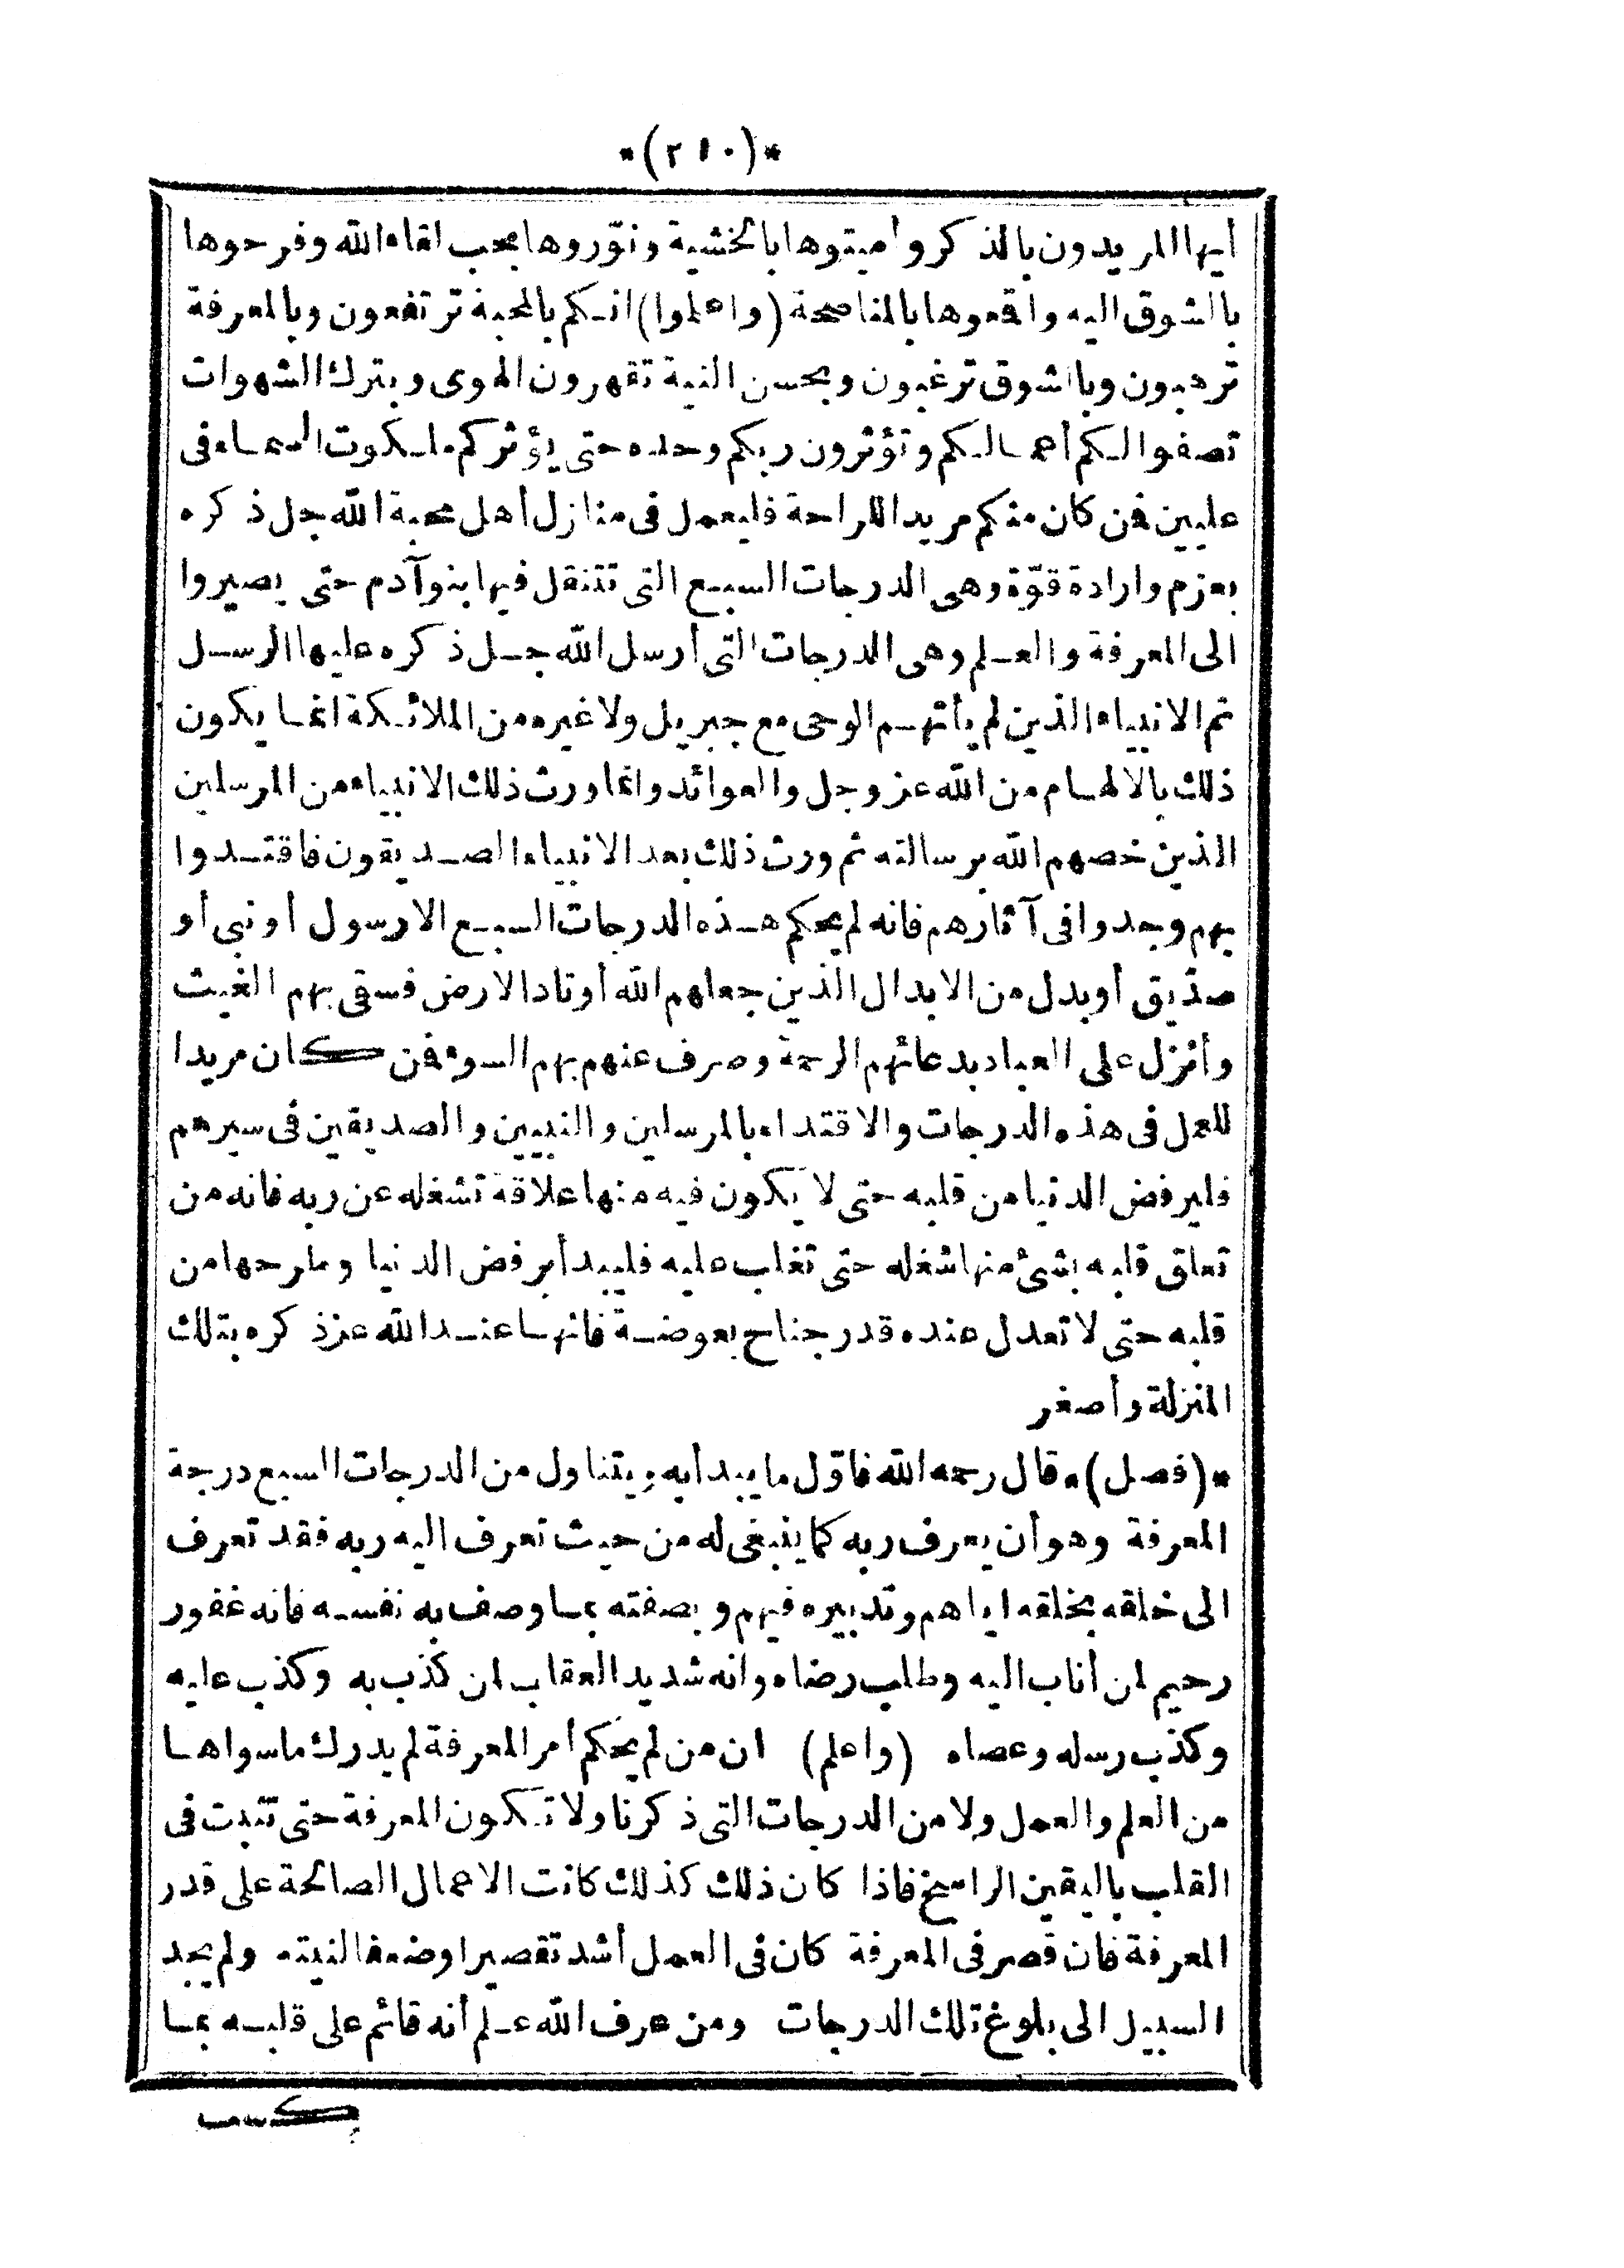 *(٢١٠)*
أيها المريدون بالذكر وأميتوها بالخشية ونوّروها بحب لقاء الله وفرحوها
بالشوق اليه واقمعوها بالمناصحة (واعلموا) انكم بالمحبة ترتفعون وبالمعرفة
ترهبون وبالشوق ترغبون وبحسن النية تقهرون الهوى وبترك الشهوات
تصفوا لكم أعمالكم وتؤثرون ربكم وحده حتى يؤثركم ملكوت السماء فى
عليين فمن كان منكم مريدا للراحة فليعمل فى منازل أهل محبة الله جل ذكره
بعزم وارادة قوّة وهى الدرجات السبع التى تتنقل فيها بنو آدم حتى يصيروا
الى المعرفة والعلم وهى الدرجات التى أرسل الله جل ذكره عليها الرسل
ثم الانبياء الذين لم يأتهم الوحى مع جبريل ولا غيره من الملائكة انما يكون
ذلك بالالهام من الله عز وجل والعوائد وانما ورث ذلك الانبياء من المرسلين
الذين خصهم الله برسالته ثم ورث ذلك بعد الانبياء الصديقون فاقتدوا
بهم وجدوا فى آثارهم فانه لم يحكم هذه الدرجات السبع الا رسول أو نبى أو
صدّيق أو بدل من الابدال الذين جعلهم الله أوتاد الارض فسقى بهم الغيث
وأنزل على العباد بدعائهم الرحمة وصرف عنهم بهم السوء فمن كان مريدا
للعمل فى هذه الدرجات والاقتداء بالمرسلين والنبيين والصديقين فى سيرهم
فليرفض الدنيا من قلبه حتى لا يكون فيه منها علاقة تشغله عن ربه فانه من
تعلق قلبه بشئ منها شغله حتى تغلب عليه فليبدأ برفض الدنيا وطرحها من
قلبه حتى لا تعدل عنده قدر جناح بعوضة فانها عند الله عز ذكره بتلك
المنزلة وأصغر
*(فصل)* قال رحمه الله فاوّل ما يبدأ به ويتناول من الدرجات السبع درجة
المعرفة وهو أن يعرف ربه كما ينبغى له من حيث تعرف اليه ربه فقد تعرف
الى خلقه بخلقه اياهم وتدبيره فيهم وبصفته بما وصف به نفسه فانه غفور
رحيم لمن أناب اليه وطلب رضاه وانه شديد العقاب لمن كذب به وكذب عليه
وكذب رسله وعصاه (واعلم) ان من لم يحكم أمر المعرفة لم يدرك ما سواها
من العلم والعمل ولا من الدرجات التى ذكرنا ولا تكون المعرفة حتى تثبت فى
القلب باليقين الراسخ فاذا كان ذلك كذلك كانت الاعمال الصالحة على قدر
المعرفة فان قصر فى المعرفة كان فى العمل أشد تقصيرا وضعفا لنيته ولم يجد
السبيل الى بلوغ تلك الدرجات ومن عرف الله علم أنه قائم على قلبه بما
يكسب